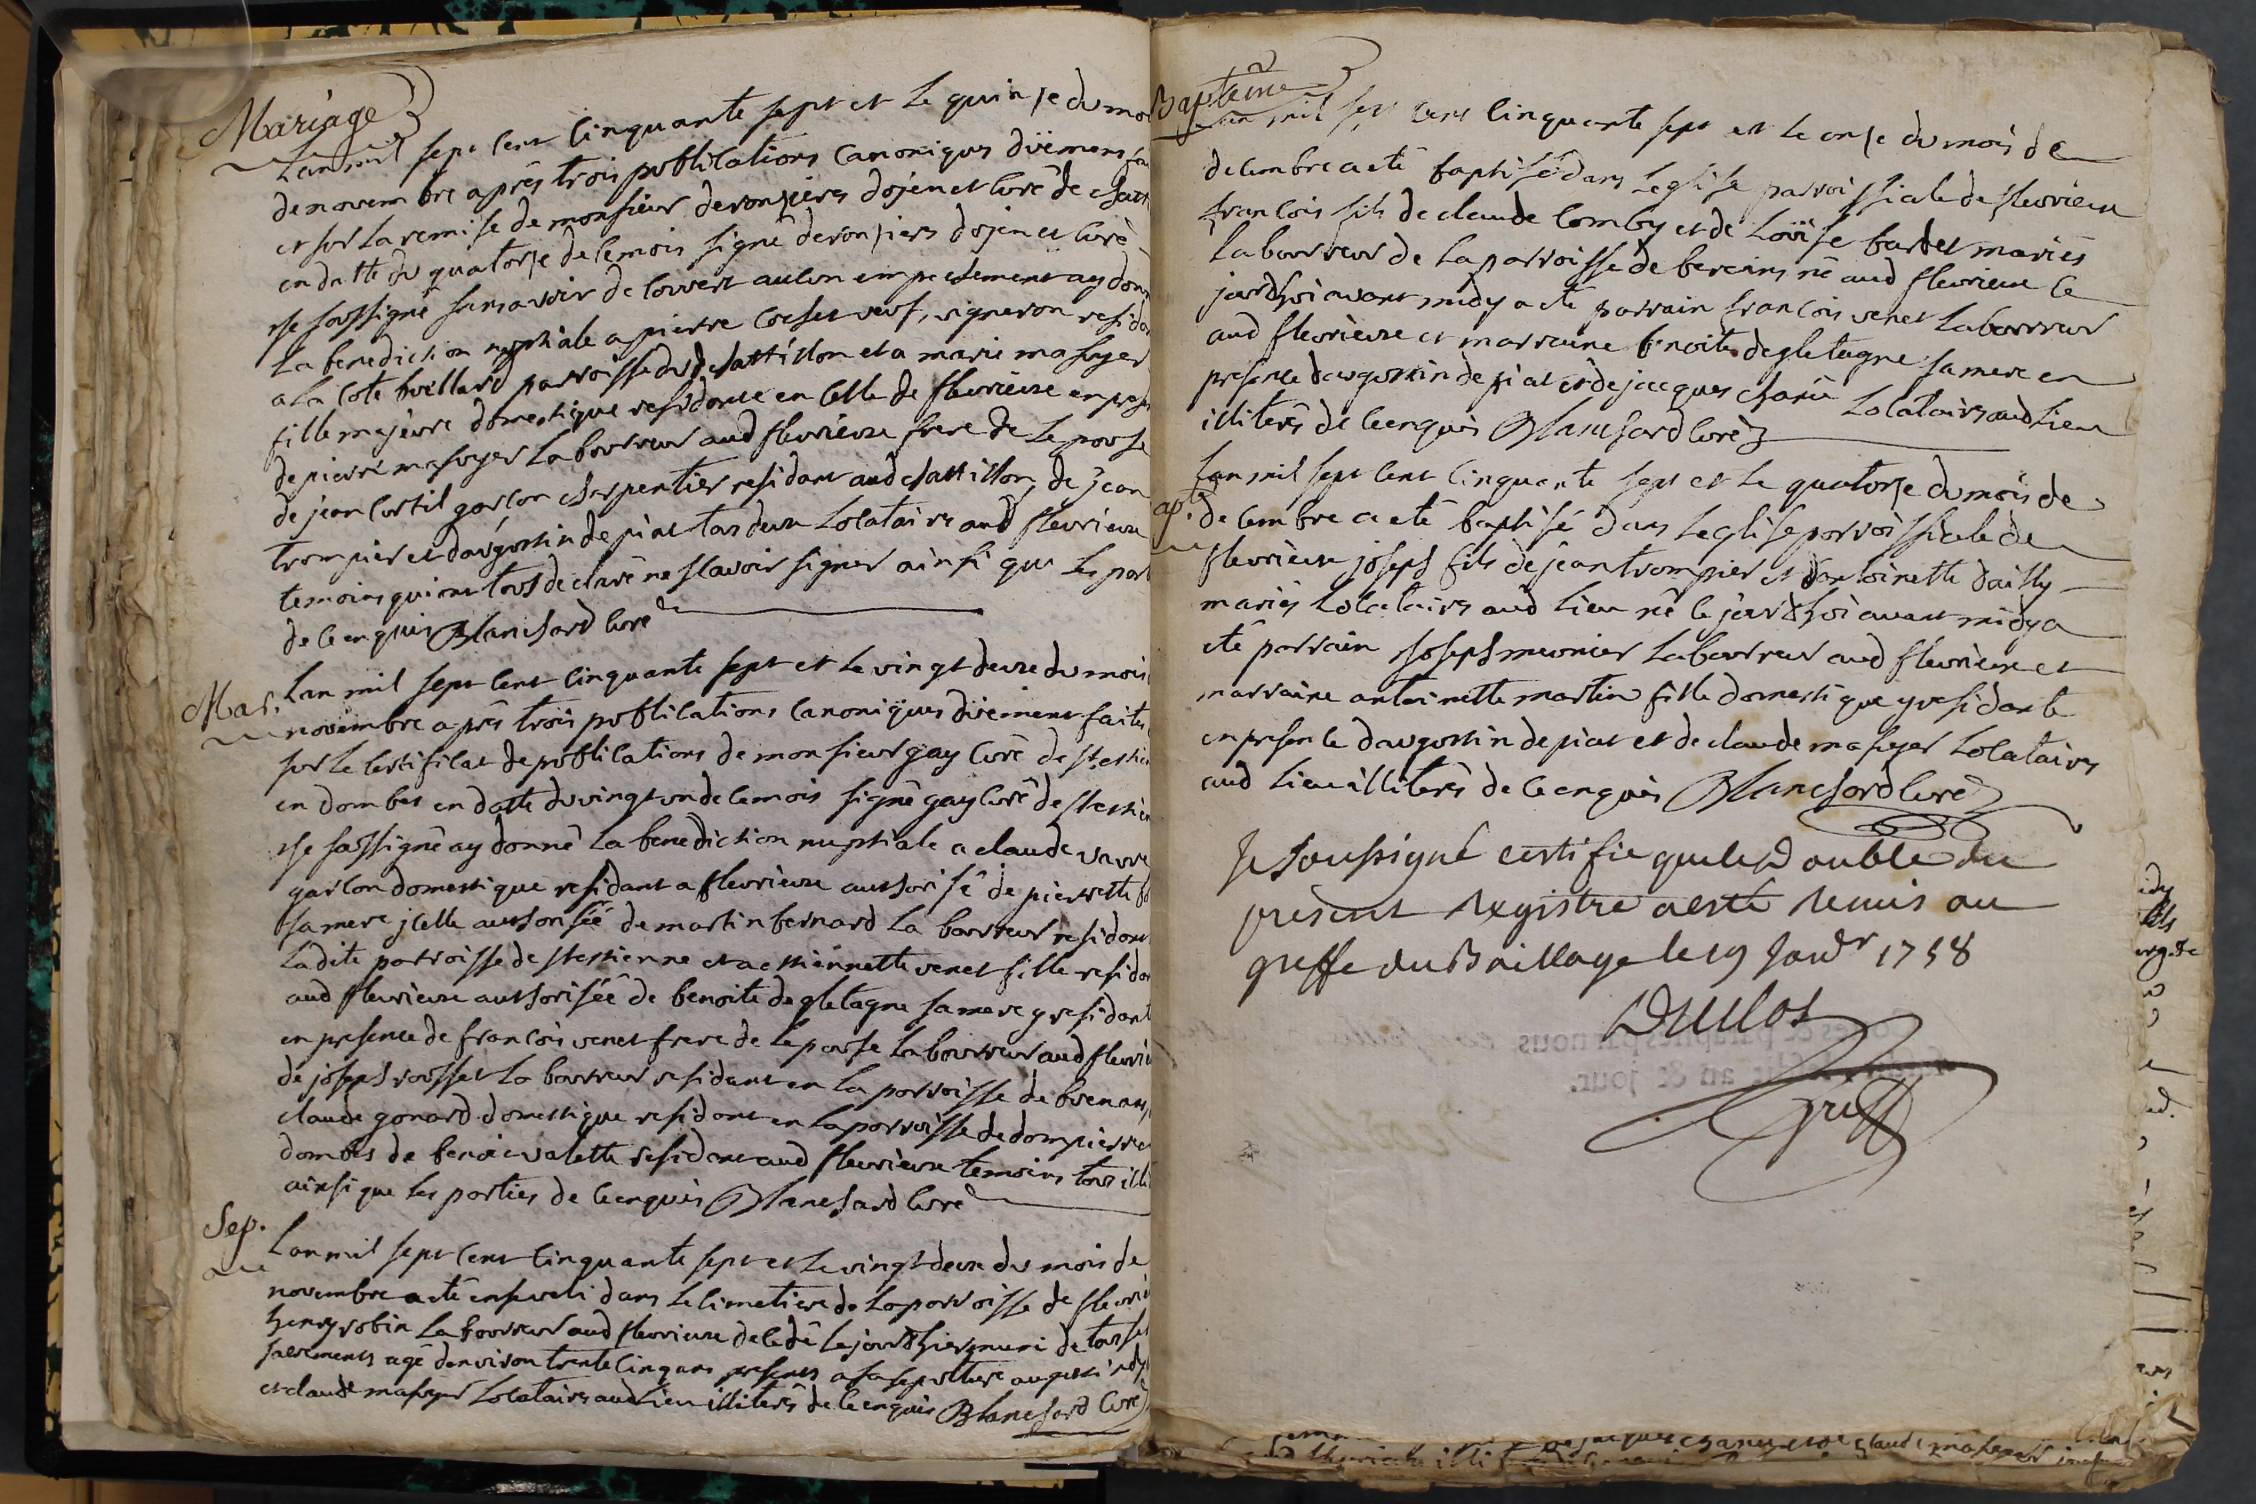 Mariage
Lan mil sept cent cinquante sept et le quinze du moi
de novembre après trois publications canoniques düemens fai
et sur la remise de monsieur deronziers dojen et curé de chatt
en datte du quatorze de ce mois signé deronziers dojen et curé
Je soussigné sans avoir decouvert aucun impechement ay donn
la benediction nuptiale a pierre cochet veuf, vigneron residen
a la cote buellard parroisse dud chattillon et a marie masuyer
fille majeure domestique residente en celle de fleurieux en prese
de pierre masuyer laboureur aud fleurieux frere de lepouse
de jean curtil garcon charpentier residant aud chattillon, de jean
trompier et daugustin depiat tardeux locataire aud fleurieux
temoins qui ont tous declaré ne scavoir signer ainsi que les part
de ce enquis Blanchard curé
Mar. Lan mil sept cent cinquante sept et le vingt deux du mois
novembre après trois publications canoniques düement faites
sur le certificat de publications de monsieur gay curé de st estie
en dombes en datte du vingt un de ce mois signé gay curé de st estie
Je soussigné ay donné la benediction nuptiale a claude
garcon domestique residant a fleurieux authorisé de pierrette
sa mere jcelle authorisée de martin bernard laboureur residant
ladite parroisse de st estienne et a estiennette venet fille residan
aud fleurieux authorisée de benoite degletagne sa mere y residant
en presence de francois venet frere de lepouse laboureur aud fleurie
de joseph rousset laboureur residant en la parroisse de buenans,
claude gonard domestique residant en la parroisse de dompierre
dombes de benoit valette residant aud fleurieux temoins tous illi
ainsi que les parties de ce enquis Blanchard curé
Sep. Lan mil sept cent cinquante sept et le vingt deux du mois de
novembre a eté enseveli dans le cimetiere de la parroisse de fleurie
henry robin laboureur aud fleurieux decedé le jour dhier muni de tous ses
sacrements agé denviron trente cinq ans presents a sa sepulture augusti
et claude masuyer locataires aud lieu illiterés de ce enquis Blanchard curé
Baptême
Lan mil sept cent cinquante sept et le onze du mois de
decembre a eté baptisé dans leglise parroissiale de fleurieux
francois fils de claude comby et de Loüise bardet mariés
laboureur de la parroisse de bereins né aud fleurieux ce
jourdhui avant midy a eté parrain francois venet laboureur
aud fleurieux et marraine benoite degletagne sa mere en
presence daugustin depiat et de jacques charié locataires aud lieu
illiterés de ce enquis Blanchard curé
Lan mil sept cent cinquante sept et le quatorze du mois de
ap. decembre a eté baptisé dans leglise parroissiale de
fleurieux joseph fils de jean trompier et dantoinette dailly
mariés locataires aud lieu né ce jourdhui avant midy a
eté parrain joseph meunier laboureur aud fleurieux et
marraine antoinette martin fille domestique y residante
en presence daugustin depiat et de claude masuyer locataires
aud lieu illiterés de ce enquis Blanchard curé
Je soussigné certifie que le double du
present Registre a esté Remis au
greffe du Baillage le 19 Janvr 1758
Duclos
Greff